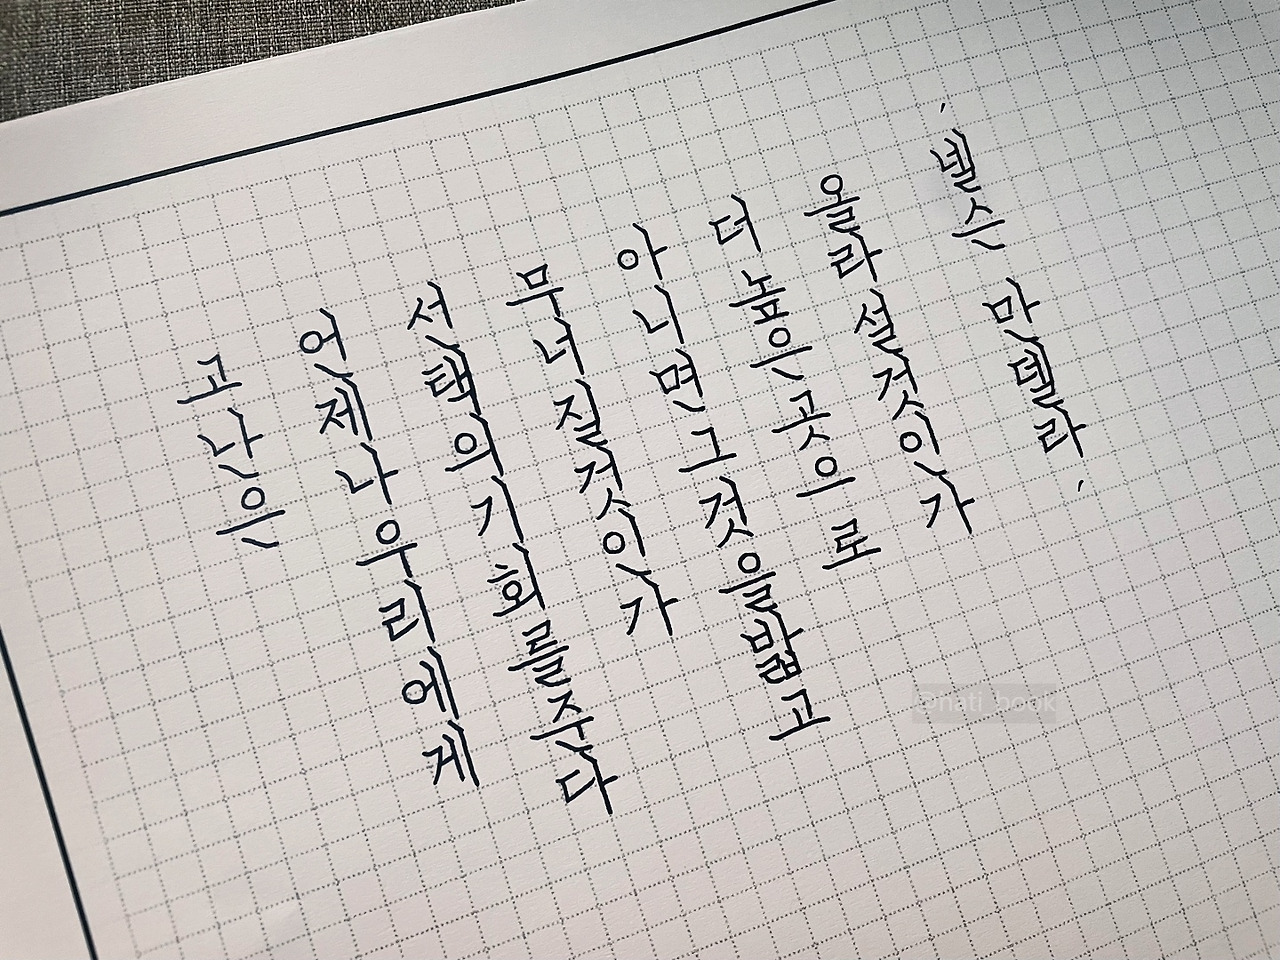 고난은
언제나 우리에게
선택의 기회를 준다
무너질 것인가
아니면 그것을 밟고
더 높은 곳으로
올라설 것인가
'넬슨 만델라'
@hati_book